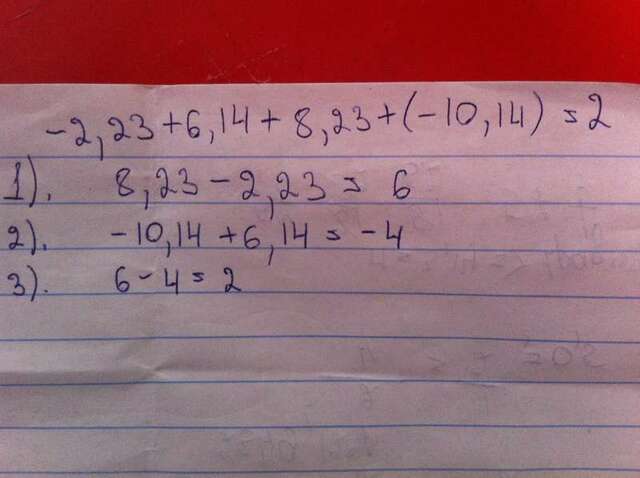 -2,23+6,14+8,23+(-10,14)=2
1). 8,23-2,23= 6
2). -10,14+6,14=-4
3). 6-4=2